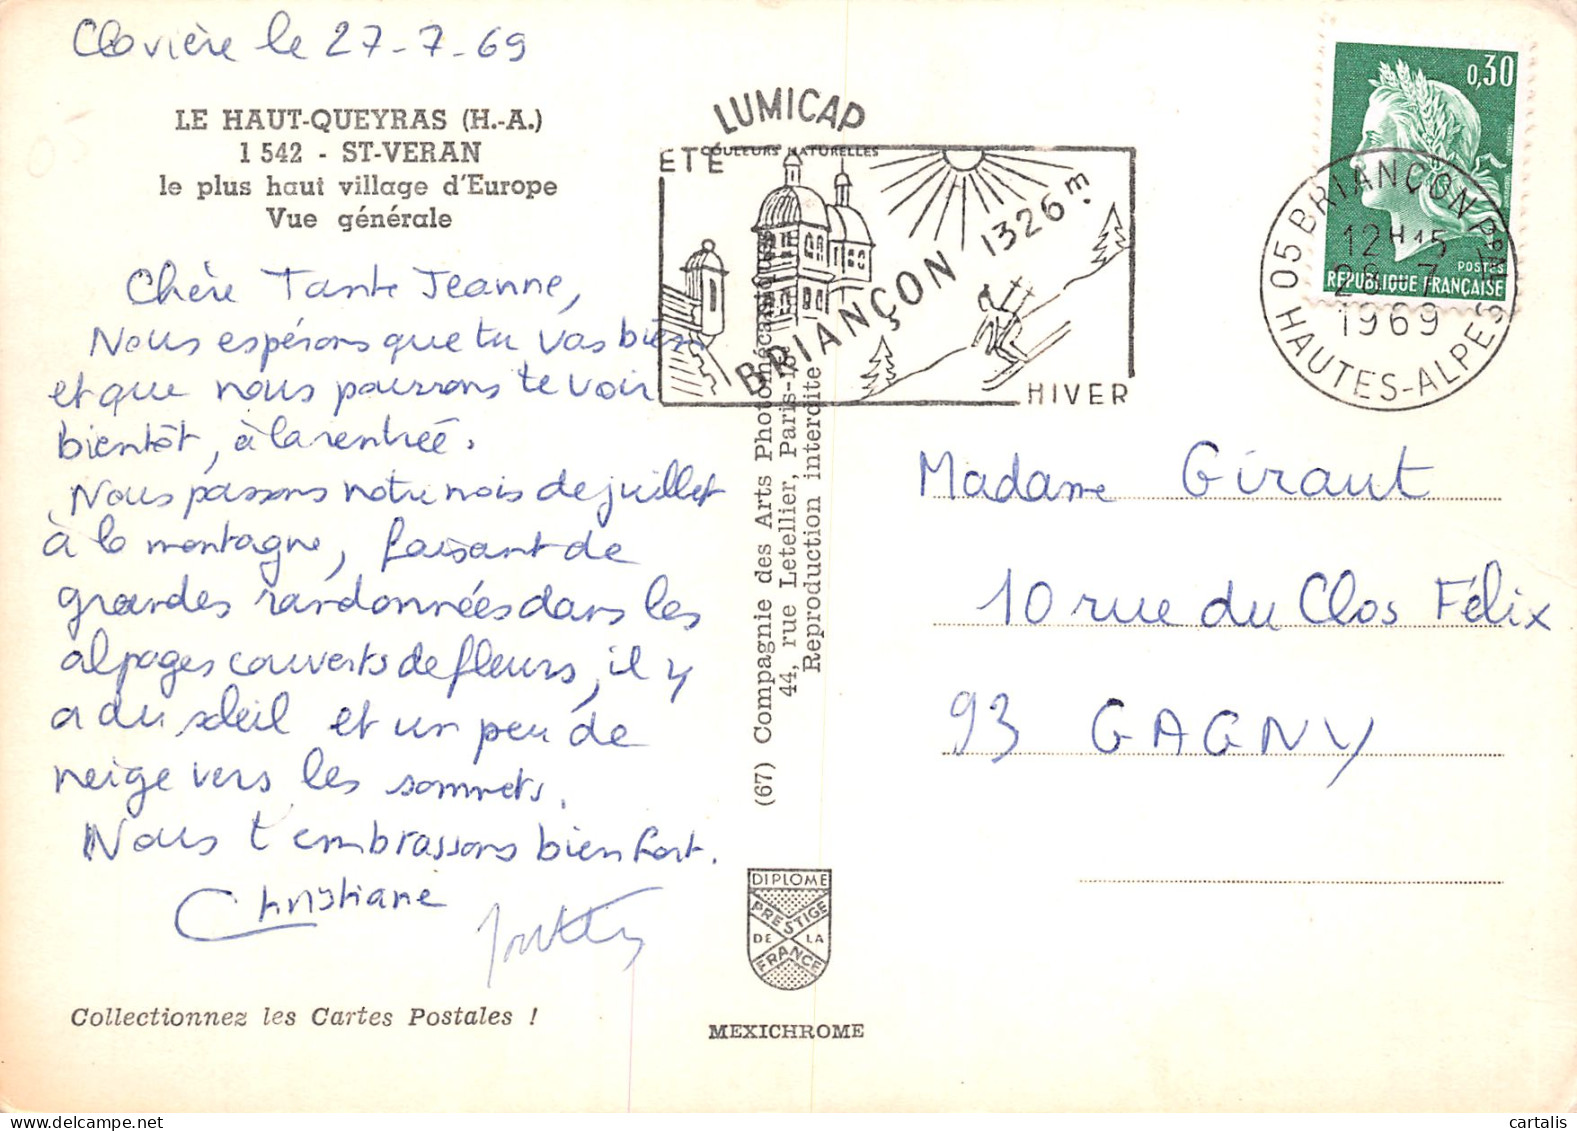 Clavière le 27-7-69
LE HAUT-QUEYRAS (H.-A.)
1 542 - ST-VERAN
le plus haut village d'Europe
Vue générale
Chère Tante Jeanne,
Nous espérons que tu vas bien
et que nous pourrons te voir
bientôt, à la rentrée.
Nous passons notre mois de juillet
à la montagne, faisant de
grandes randonnées dans les
alpages couverts de fleurs, il y
a du soleil et un peu de
neige vers les sommets.
Nous t'embrassons bien fort.
Christiane
Collectionnez les Cartes Postales !
LUMICAP
COULEURS NATURELLES
ÉTÉ
BRIANÇON 1326m
HIVER
(67) Compagnie des Arts Photomécaniques
44, rue Letellier, Paris-15e
Reproduction interdite
DIPLOME
PRESTIGE
DE LA
FRANCE
MEXICHROME
0,30
POSTES
REPUBLIQUE FRANÇAISE
05 BRIANÇON PPAL
12H15
1969
HAUTES-ALPES
Madame Giraut
10 rue du Clos Félix
93 GAGNY
cartalis